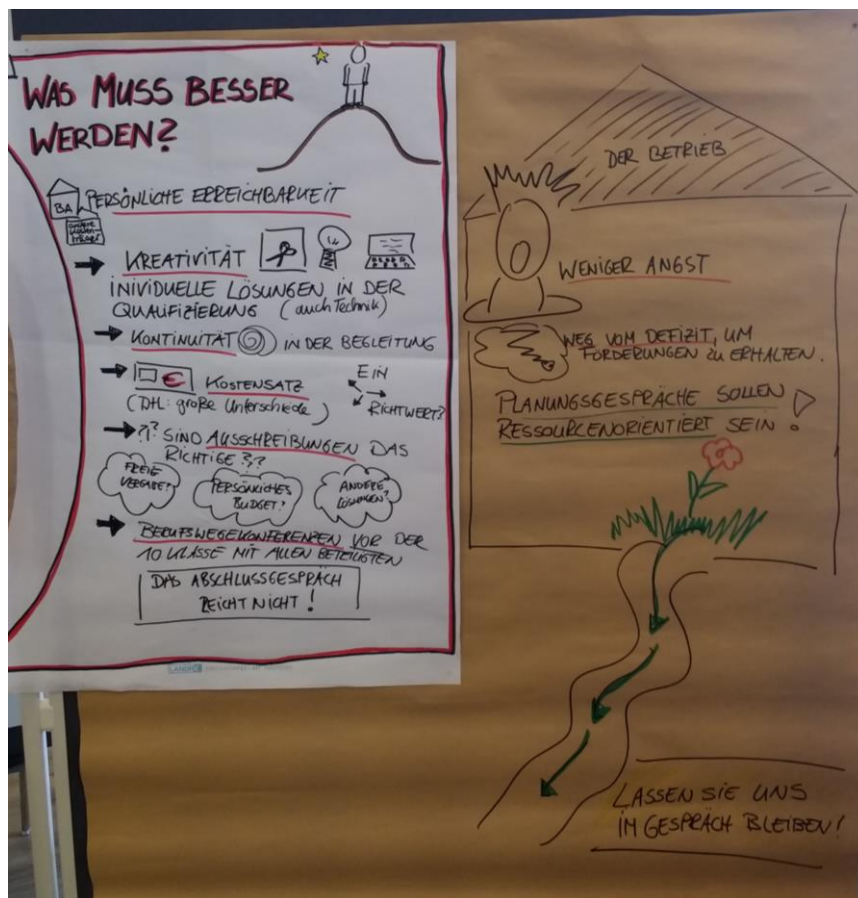 WAS MUSS BESSER
WERDEN?
BA
PERSÖNLICHE ERREICHBARKEIT
KREATIVITÄT
INIVIDUELLE LÖSUNGEN IN DER
QUALIFIZIERUNG (auch Technik)
KONTINUITÄT IN DER BEGLEITUNG
€ KOSTENSATZ
(DHL: große Unterschiede)
EIN
RICHTWERT?
?? SIND AUSSCHREIBUNGEN DAS
RICHTIGE ???
FREIE
VERGABE?
PERSÖNLICHES
BUDGET?
ANDERE
LÖSUNGEN?
BERUFSWEGEKONFERENZEN VOR DER
10 KLASSE MIT ALLEN BETEILIGTEN
DAS ABSCHLUSSGESPRÄCH
REICHT NICHT!
DER BETRIEB
WENIGER ANGST
WEG VOM DEFIZIT, UM
FÖRDERUNGEN ZU ERHALTEN.
PLANUNGSGESPRÄCHE SOLLEN
RESSOURCENORIENTIERT SEIN!
LASSEN SIE UNS
IM GESPRÄCH BLEIBEN!